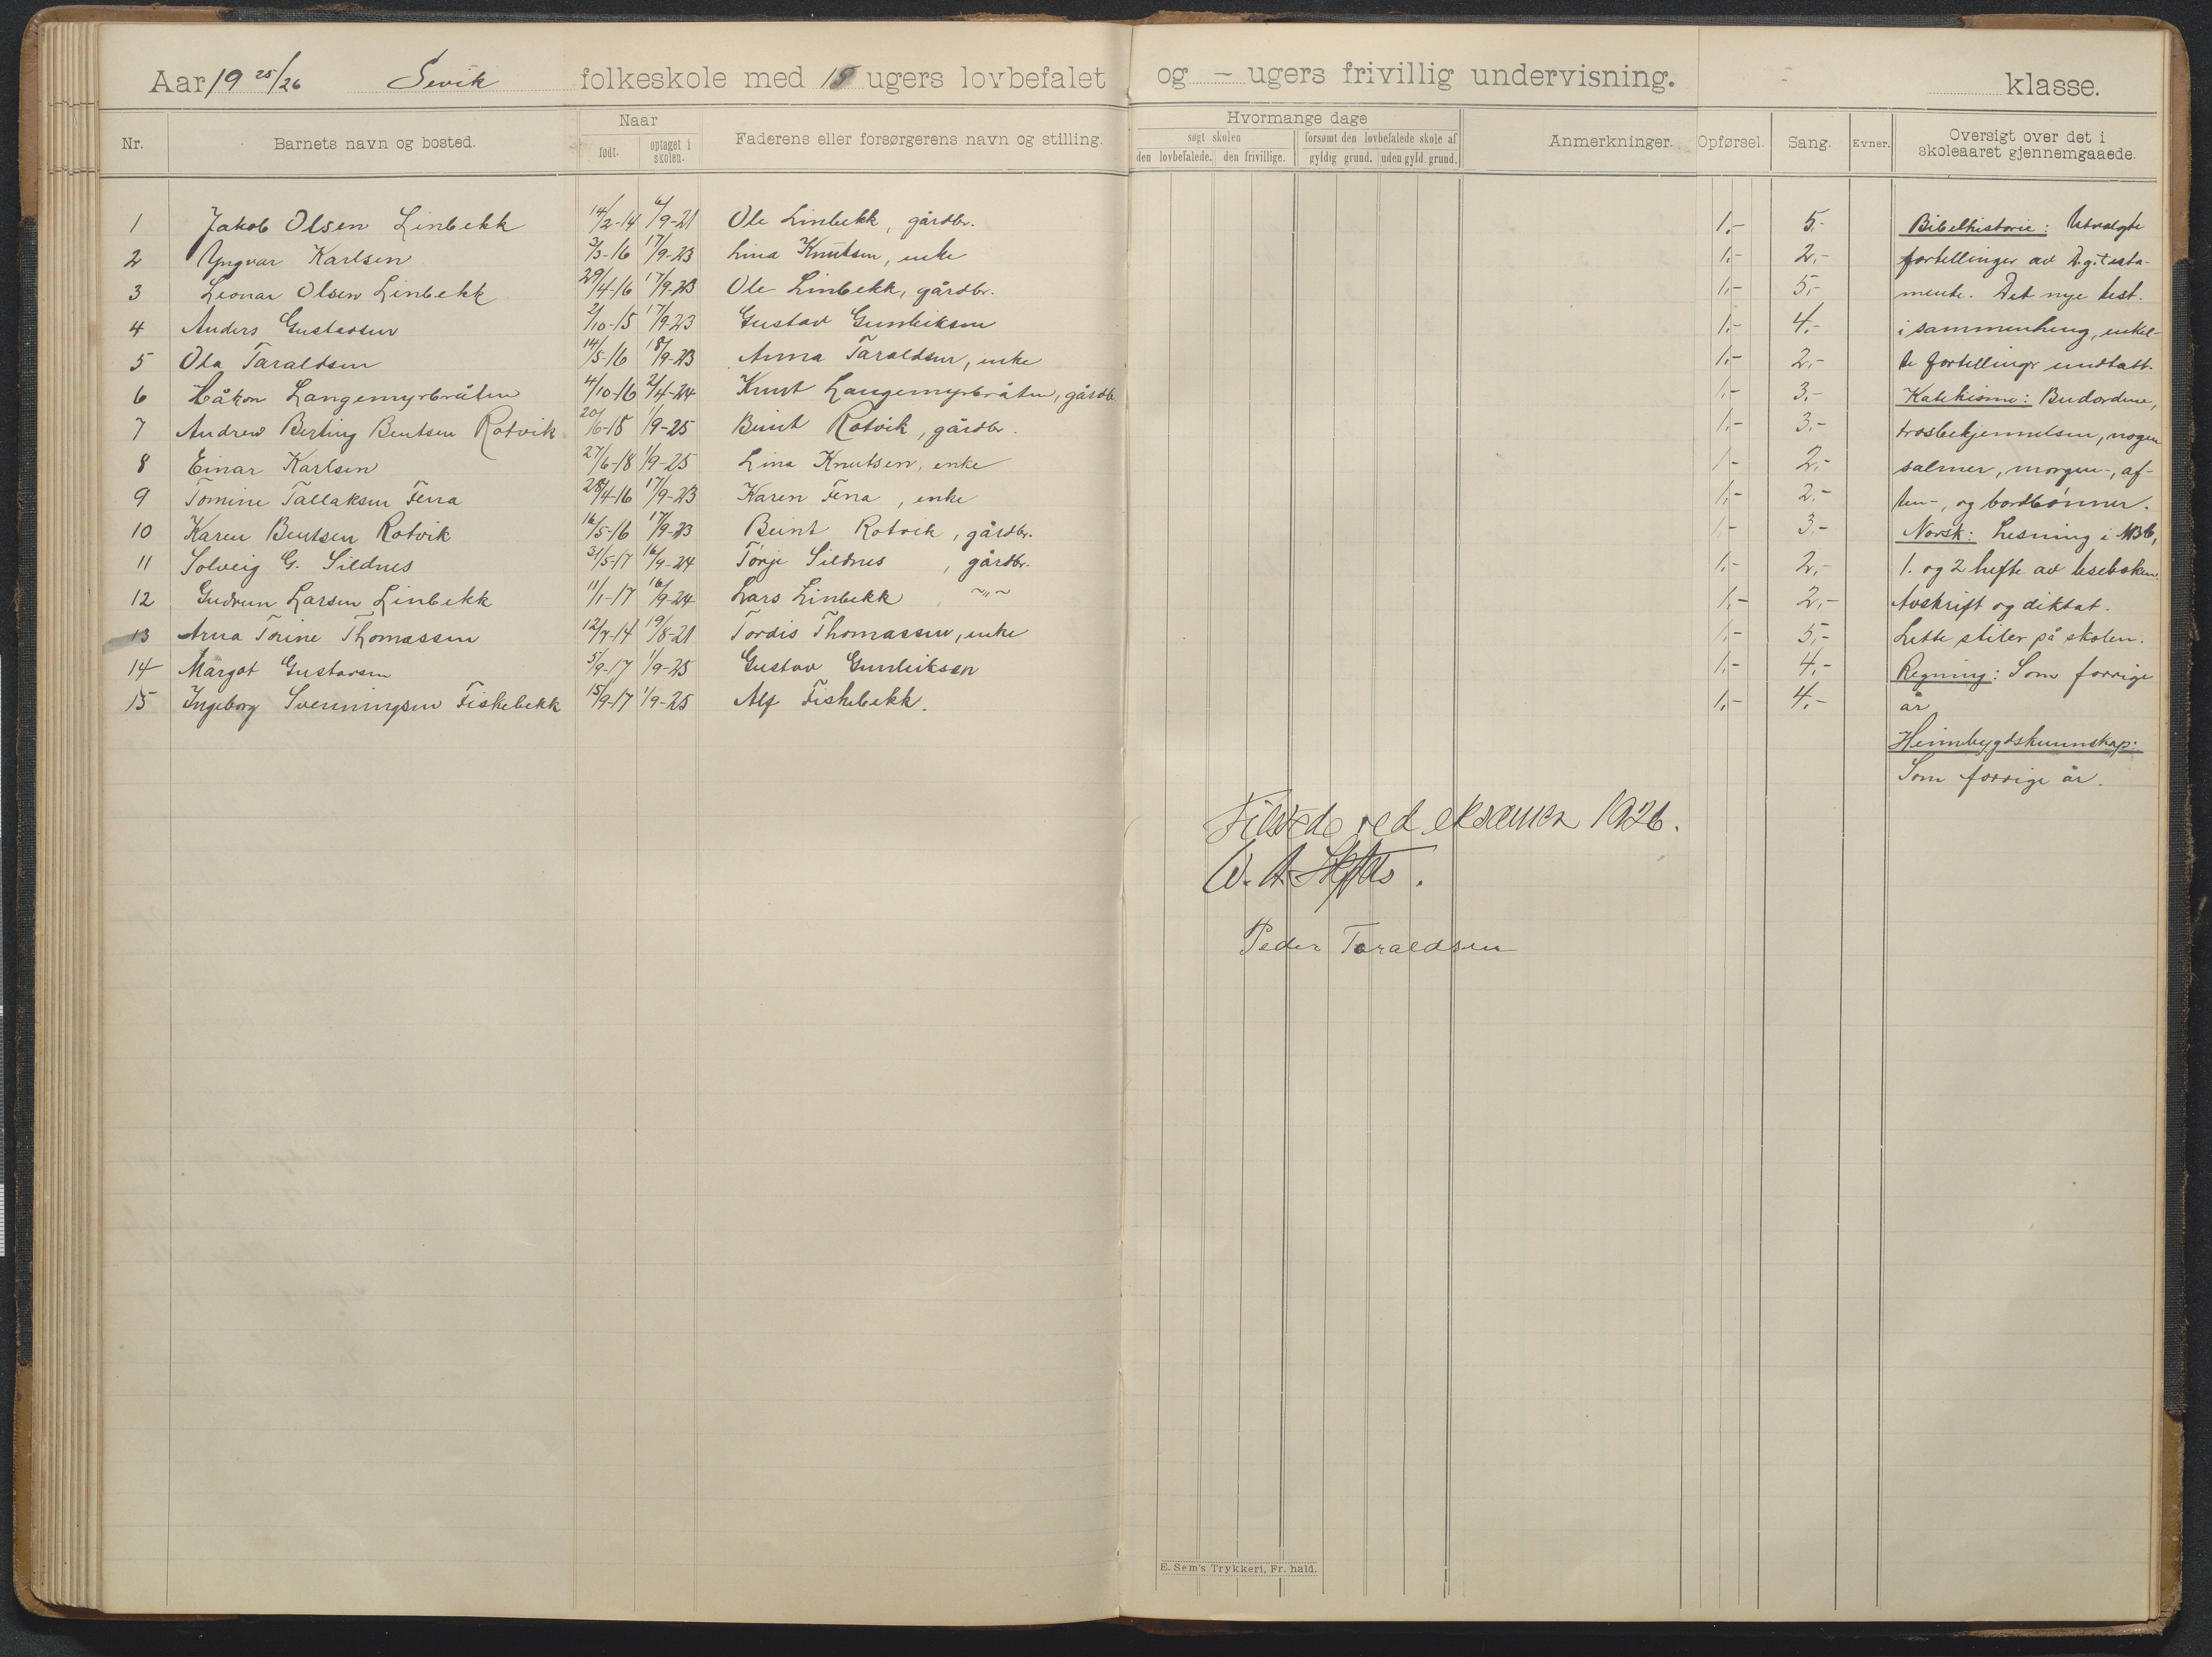 Aar 19 25/26 Sevik folkeskole med 18 ugers lovbefalet og - ugers frivillig undervisning. klasse.
Nr. Barnets navn og bosted. Naar født. optaget i skolen. Faderens eller forsørgerens navn og stilling. Hvormange dage søgt skolen den lovbefalede. den frivillige. forsømt den lovbefalede skole af gyldig grund. uden gyld. grund. Anmerkninger. Opførsel. Sang. Evner. Oversigt over det i skoleaaret gjennemgaaede.
1 Jakob Olsen Linbekk 14/2-14 6/9-21 Ole Linbekk, gårdbr. 1,- 5,- Bibelhistorie: Utvalgte
2 Yngvar Karlsen 3/3-16 17/9-23 Lina Knutsen, enke 1,- 2,- fortellinger av D.g. testa-
3 Leonar Olsen Linbekk 29/4-16 17/9-23 Ole Linbekk, gårdbr. 1,- 5,- mente. Det nye test.
4 Anders Gustavsen 2/10-15 17/9-23 Gustav Gunleiksen 1,- 4,- i sammenheng, enkel-
5 Ola Taraldsen 14/5-16 18/9-23 Anna Taraldsen, enke 1,- 2,- te fortellinger undtatt.
6 Håkon Langemyrbråten 4/10-16 2/4-24 Knut Langemyrbråten, gårdb 1,- 3,- Katekisme: Budordene,
7 Andrew Berling Bentsen Rotvik 20/6-18 1/9-25 Beint Rotvik, gårdbr. 1,- 3,- trosbekjennelsen, nogen
8 Einar Karlsen 27/6-18 1/9-25 Lina Knutsen, enke 1- 2,- salmer, morgen-, af-
9 Tomine Tallaksen Fena 28/4-16 17/9-23 Karen Fena, enke 1,- 2,- ten-, og bordbønner.
10 Karen Bentsen Rotvik 16/5-16 17/9-23 Beint Rotvik, gårdbr. 1,- 3,- Norsk: Lesning i ABC,
11 Solveig G. Sildnes 31/5-17 16/9-24 Tørje Sildnes, gårdbr. 1,- 2,- 1. og 2 hefte av leseboken.
12 Gudrun Larsen Linbekk 11/1-17 16/9-24 Lars Linbekk ~"~ 1,- 2,- Avskrift og diktat.
13 Arna Torine Thomassen 12/7-14 19/8-21 Tordis Thomassen, enke 1,- 5,- Lette stiler på skolen.
14 Margot Gustavsen 5/9-17 1/9-25 Gustav Gunleiksen 1,- 4,- Regning: Som forrige
15 Ingeborg Sveinungsen Fiskebekk 15/9-17 1/9-25 Alf Fiskebekk. 1,- 4,- år
Heimbygdskunnskap:
Som forrige år.
Tilstede ved eksamen 1926.
Peder Taraldsen
E. Sem's Trykkeri, Fr. hald.